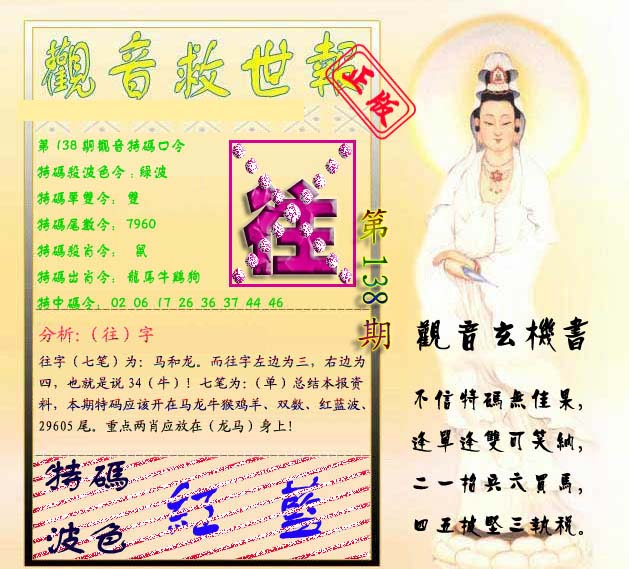 觀音救世報
正版
第138期觀音特碼口令
特碼殺波色令：綠波
特碼單雙令： 雙
特碼尾數令： 7960
特碼殺肖令： 鼠
特碼出肖令： 龍馬牛鷄狗
特中碼令： 02 06 17 26 36 37 44 46
往
第138期
分析:（往）字
往字（七笔）为：马和龙。而往字左边为三，右边为
四，也就是说34（牛）！七笔为：（单）总结本报资
料，本期特码应该开在马龙牛猴鸡羊、双数、红蓝波、
29605尾。重点两肖应放在（龙马）身上!
特碼
波色
紅 藍
觀音玄機書
不信特碼無佳果，
逢單逢雙可笑納，
二一指兵六買馬，
四五披堅三執税。